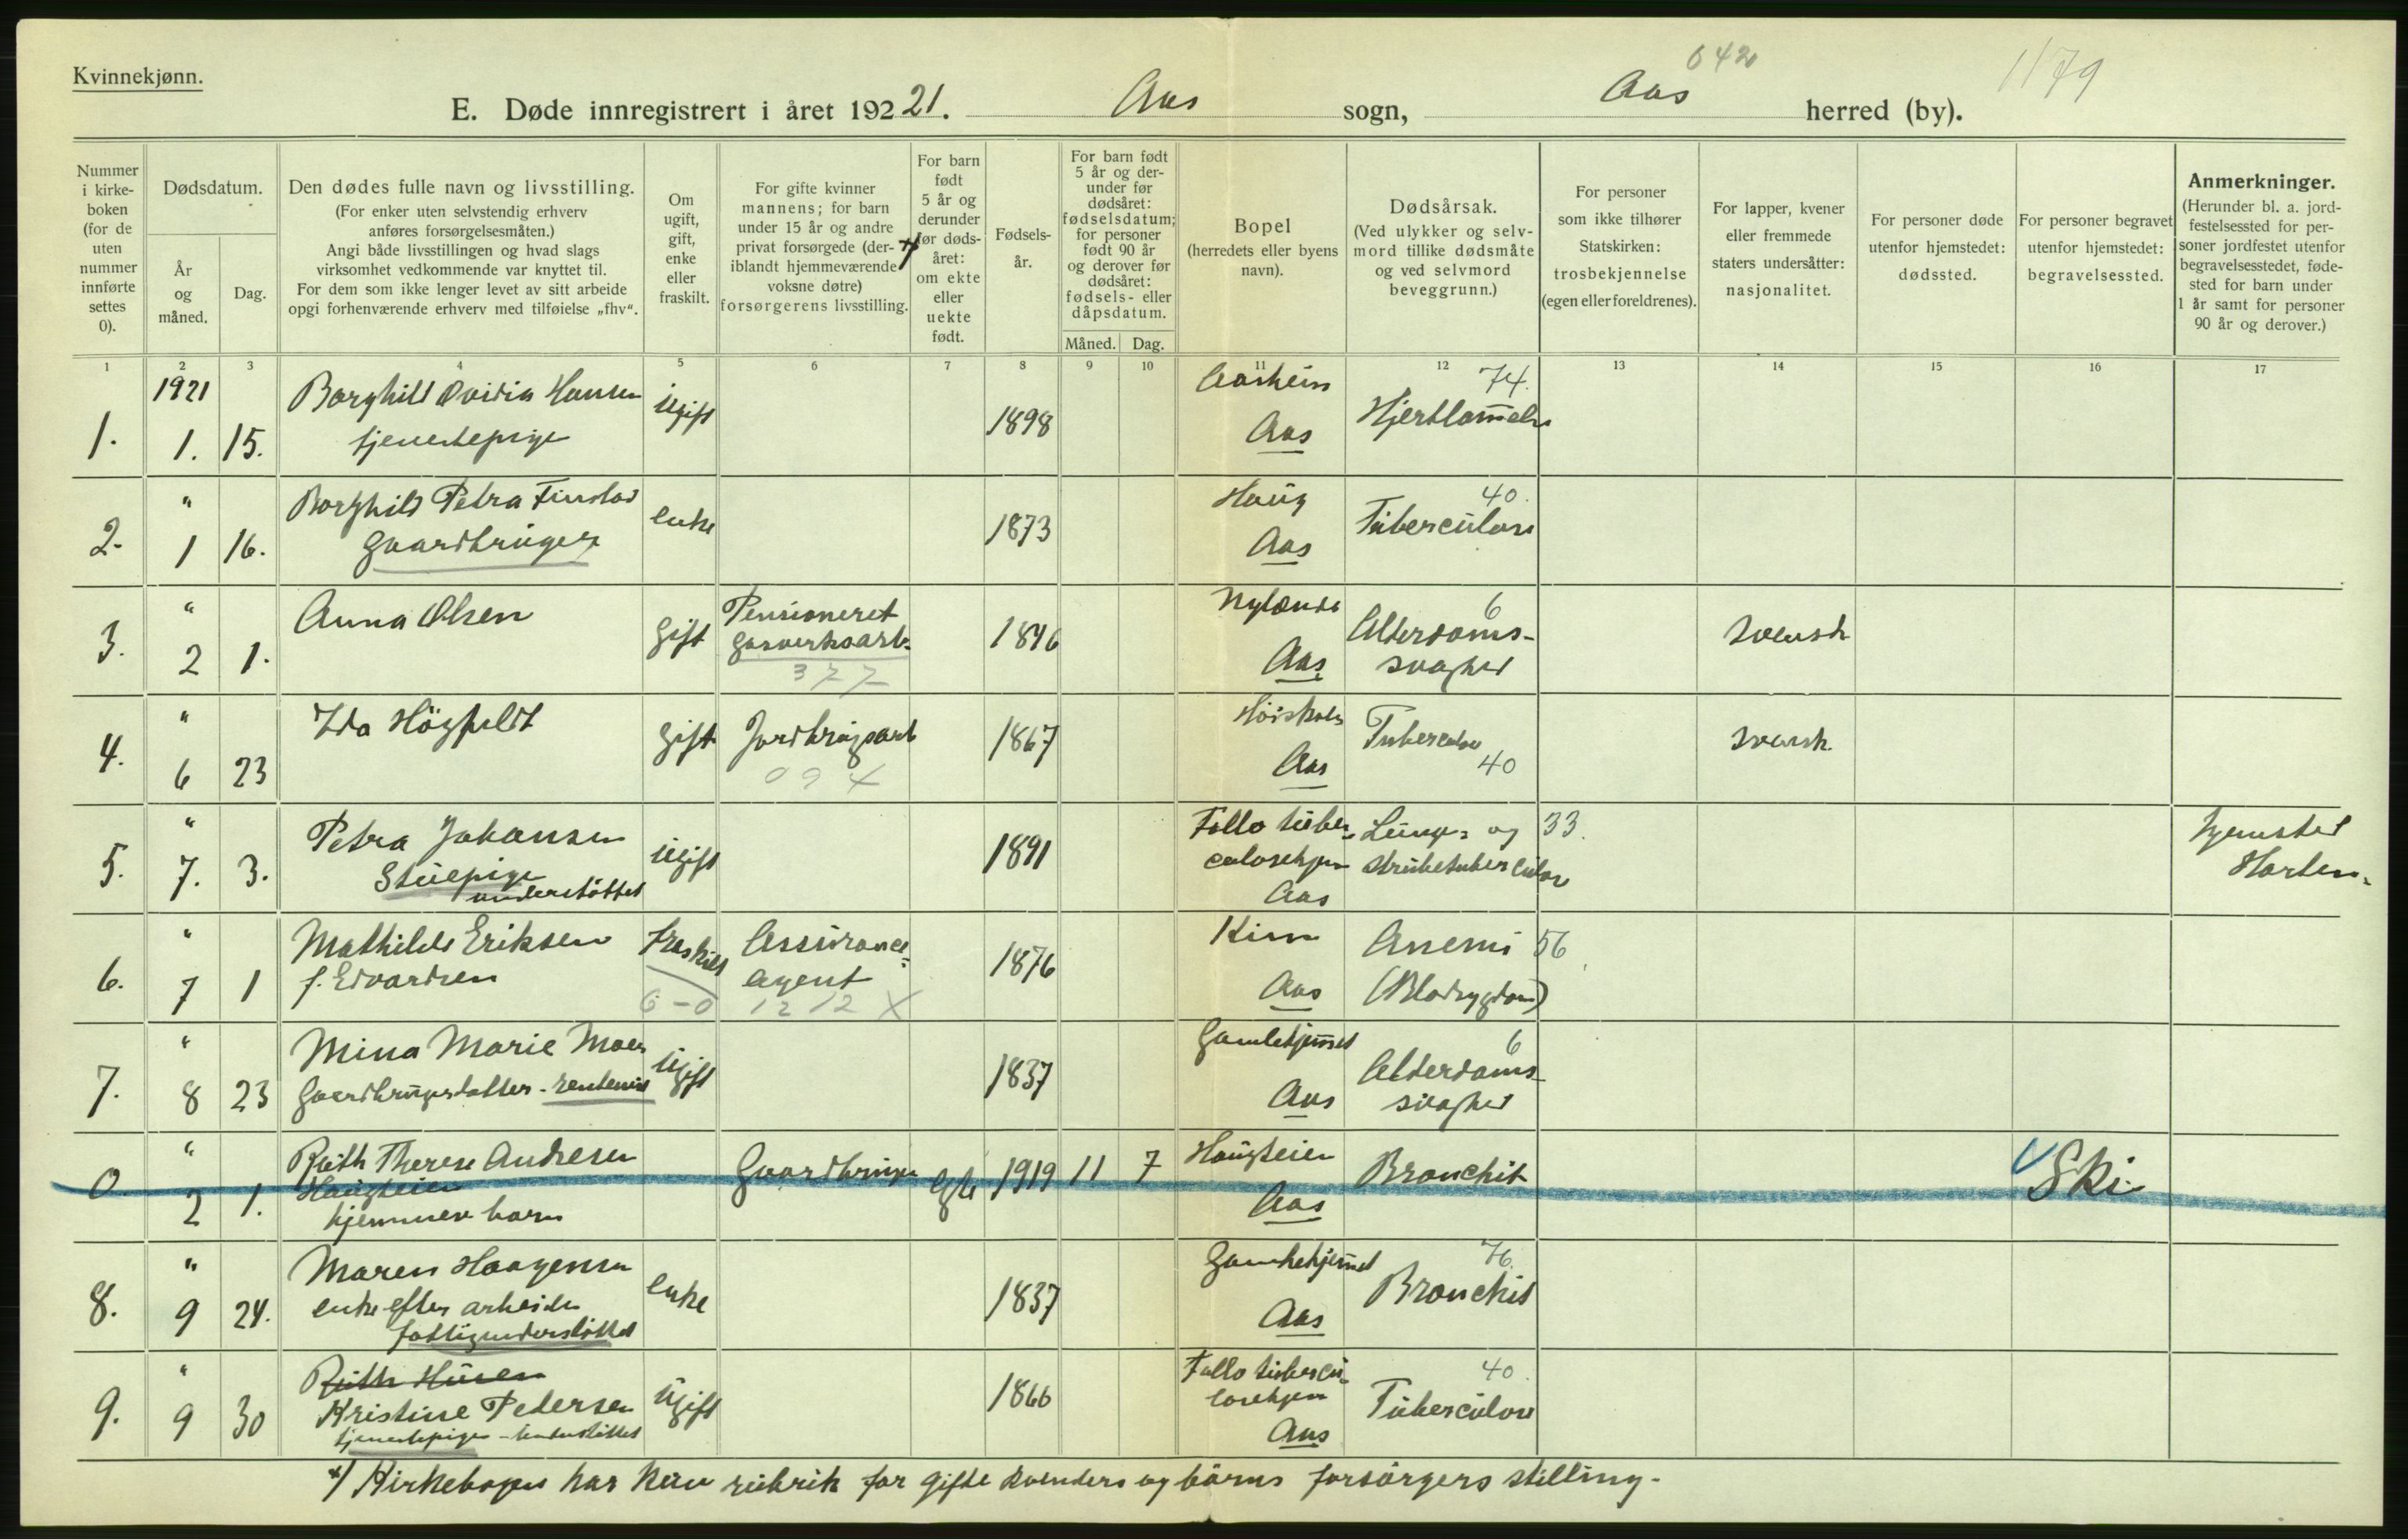 Kvinnekjønn.
642
1179
E. Døde innregistrert i året 192 21. Aas sogn, Aas herred (by).
Nummer i kirke-boken (for de uten nummer innførte settes 0).
Dødsdatum.
År og måned.
Dag.
Den dødes fulle navn og livsstilling.
(For enker uten selvstendig erhverv
anføres forsørgelsesmåten.)
Angi både livsstillingen og hvad slags
virksomhet vedkommende var knyttet til.
For dem som ikke lenger levet av sitt arbeide
opgi forhenværende erhverv med tilføielse „fhv“.
Om ugift, gift, enke eller fraskilt.
For gifte kvinner
mannens; for barn
under 15 år og andre
privat forsørgede (der-
iblandt hjemmeværende
voksne døtre)
forsørgerens livsstilling.
For barn født 5 år og derunder før døds-året: om ekte eller uekte født.
Fødsels-år.
For barn født
5 år og der-
under før
dødsåret:
fødselsdatum;
for personer
født 90 år
og derover før
dødsåret:
fødsels- eller
dåpsdatum.
Måned. Dag.
Bopel
(herredets eller byens
navn).
Dødsårsak.
(Ved ulykker og selv-
mord tillike dødsmåte
og ved selvmord
beveggrunn.)
For personer
som ikke tilhører
Statskirken:
trosbekjennelse
(egen eller foreldrenes).
For lapper, kvener
eller fremmede
staters undersåtter:
nasjonalitet.
For personer døde
utenfor hjemstedet:
dødssted.
For personer begravet
utenfor hjemstedet:
begravelsessted.
Anmerkninger.
(Herunder bl. a. jord-
festelsessted for per-
soner jordfestet utenfor
begravelsesstedet, føde-
sted for barn under
1 år samt for personer
90 år og derover.)
1 2 3 4 5 6 7 8 9 10 11 12 13 14 15 16 17
1921 Borghild Ovidia Hansen ugift Aasheim 74.
1. 1. 15. tjenestepige 1898 Aas Hjertelammelse
" Borghild Petra Finstad enke Haug 40.
2. 1 16. Gaardbruger 1873 Aas Tuberculose
" Anna Olsen Pensioneret Nylænde 6
3. 2 1. gift gasverksarb. 1846 Aas Alderdoms-svaghet svensk
377
" Ida Högfeldt gift Jordbrugsarb 1867 Høiskolen Tuberculose svensk.
4. 6 23 09 4 Aas 40
" Petra Johansen ugift 1891 Follo tuber- Lunge- og 33. hjemsted
5. 7. 3. Stuepige culosehjem strubetuberculose Horten.
understöttet Aas
" Mathilde Eriksen fraskilt Assurance- Kirn Anemi 56
6. 7 1 f. Edvardsen agent 1876 Aas (Blodsygdom)
6-0 1212 X
" Mina Marie Moer ugift Gamlehjemmet 6
7. 8 23 Gaardbrugerdatter - rentenist 1837 Aas Alderdoms-svaghet
" Ruth Therese Andresen Gaardbruger egte 1919 11 7 Haugteien Bronchit Ski
0 2 1. Haugteien Aas
hjemmev barn
" Maren Haagensen enke Gamlehjemmet 76.
8. 9 24. enke efter arbeider 1837 Aas Bronchit
fattigunderstöttet
" Ruth Husen Follo tubercu- 40.
9. 9 30 Kristine Pedersen ugift 1866 losehjem Tuberculose
tjenestepige - understöttet Aas
x/ Kirkebogen har kun rubrik for gifte kvinders og børns forsørgers stilling.